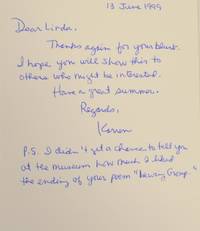 13 June 1999
Dear Linda,
Thanks again for your blurb.
I hope you will show this to
others who might be interested.
Have a great summer.
Regards,
Karen
P.S. I didn't get a chance to tell you
at the museum how much I liked
the ending of your poem "Group."